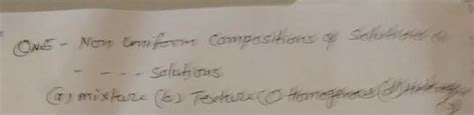 One - Non Uniform Compositions of Solutions
- - - - Solutions
(a) mixture (b) Texture (c) Homogenous (d)